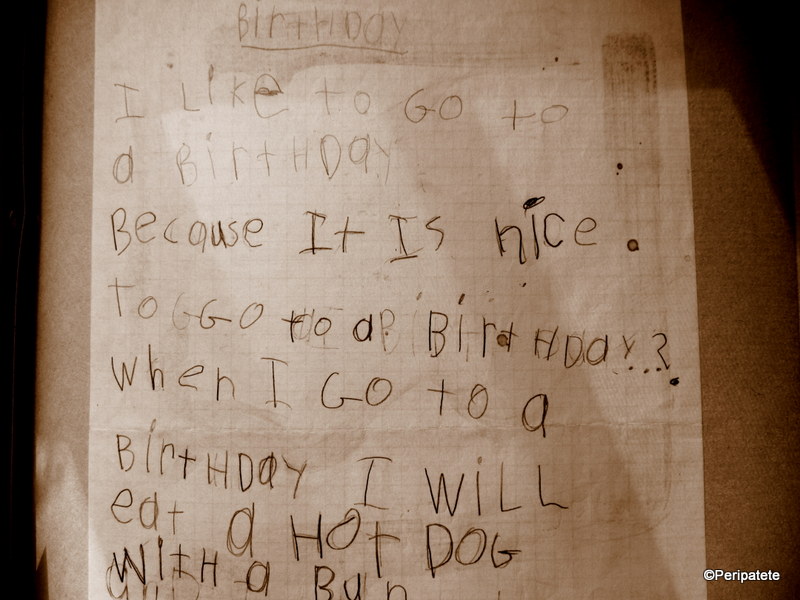 BirtHDay
I Like to GO to
a BirtHDay
Because It Is nice.
To GO to a BirtHDay?
when I GO to a
BirtHDay I WiLL
eat a HOt DOG
WitH a Bun
©Peripatete